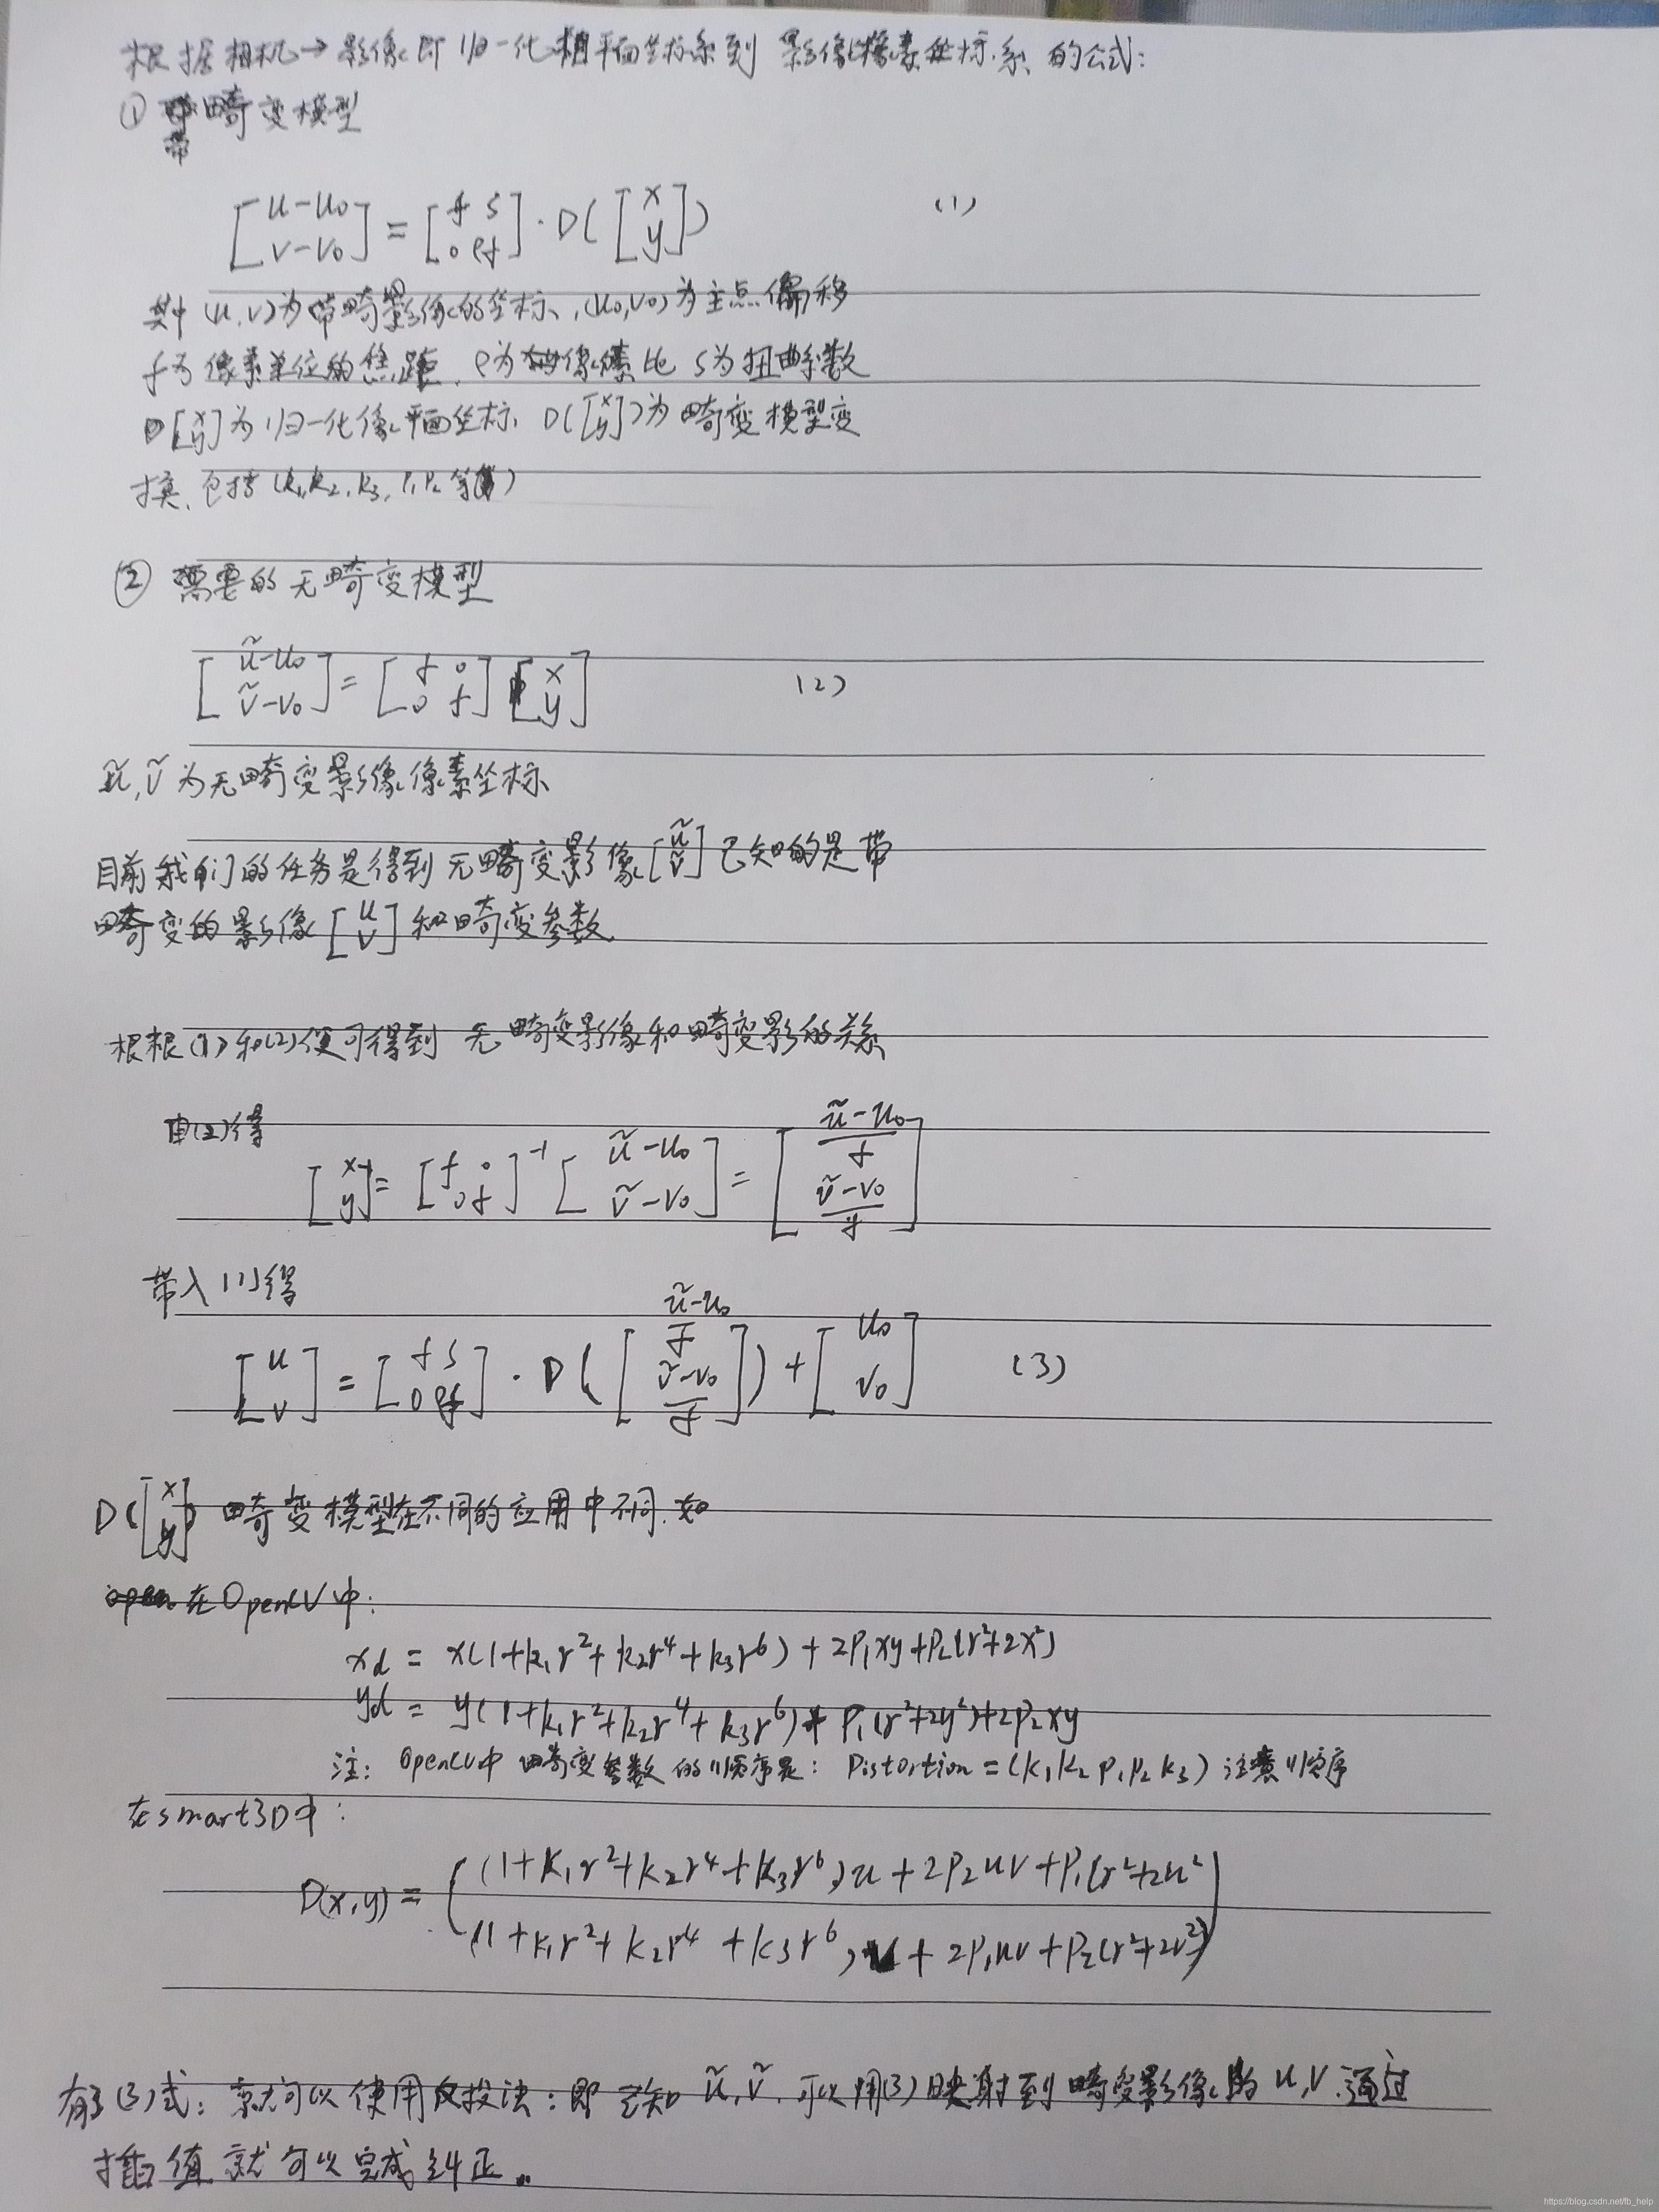 根据相机→影像即归一化相平面坐标系到影像像素坐标系的公式:
① 带畸变模型
[u-u₀ ; v-v₀] = [f s ; 0 ρf] · D([x ; y]) (1)
其中(u,v)为带畸影像的坐标,(u₀,v₀)为主点偏移
f为像素单位的焦距,ρ为像素比 s为扭曲系数
[x ; y]为归一化像平面坐标, D([x ; y])为畸变模型变
换,包括(k₁,k₂,k₃,P₁P₂等)
② 需要的无畸变模型
[ũ-u₀ ; ṽ-v₀] = [f 0 ; 0 f] [x ; y] (2)
ũ,ṽ为无畸变影像像素坐标
目前我们的任务是得到无畸变影像[ũ ; ṽ]已知的是带
畸变的影像[u ; v]和畸变参数.
根根(1)和(2)便可得到 无畸变影像和畸变影的关系
由(2)得
[x ; y] = [f 0 ; 0 f]⁻¹ [ũ-u₀ ; ṽ-v₀] = [(ũ-u₀)/f ; (ṽ-v₀)/f]
带入(1)得
[u ; v] = [f s ; 0 ρf] · D([(ũ-u₀)/f ; (ṽ-v₀)/f]) + [u₀ ; v₀] (3)
D([x ; y]) 畸变模型在不同的应用中不同.如
在OpenCV中:
xd = x(1+k₁r²+k₂r⁴+k₃r⁶) + 2P₁xy+P₂(r²+2x²)
yd = y(1+k₁r²+k₂r⁴+k₃r⁶)+ P₁(r²+2y²)+2P₂xy
注: OpenCV中 畸变参数的顺序是: Distortion=(k₁k₂ p₁p₂ k₃) 注意顺序
在smart3D中:
D(x,y) = ((1+k₁r²+k₂r⁴+k₃r⁶)u + 2P₂uv+P₁(r²+2u²)
(1+k₁r²+k₂r⁴+k₃r⁶)v + 2P₁uv+P₂(r²+2v²))
有了(3)式: 就可以使用反投法: 即已知 ũ,ṽ.可以用(3)映射到畸变影像的u,v.通过
插值就可以完成纠正。
https://blog.csdn.net/fb_help